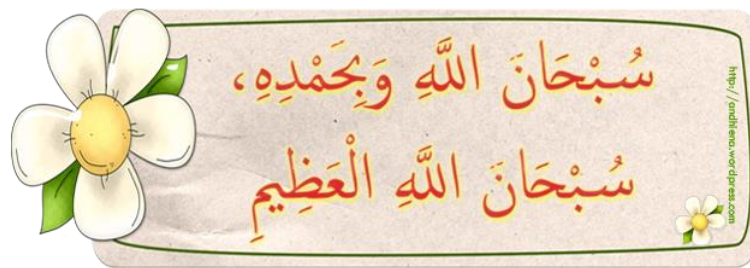 سُبْحَانَ اللَّهِ وَبِحَمْدِهِ،
سُبْحَانَ اللَّهِ الْعَظِيمِ
http://andhiena.wordpress.com